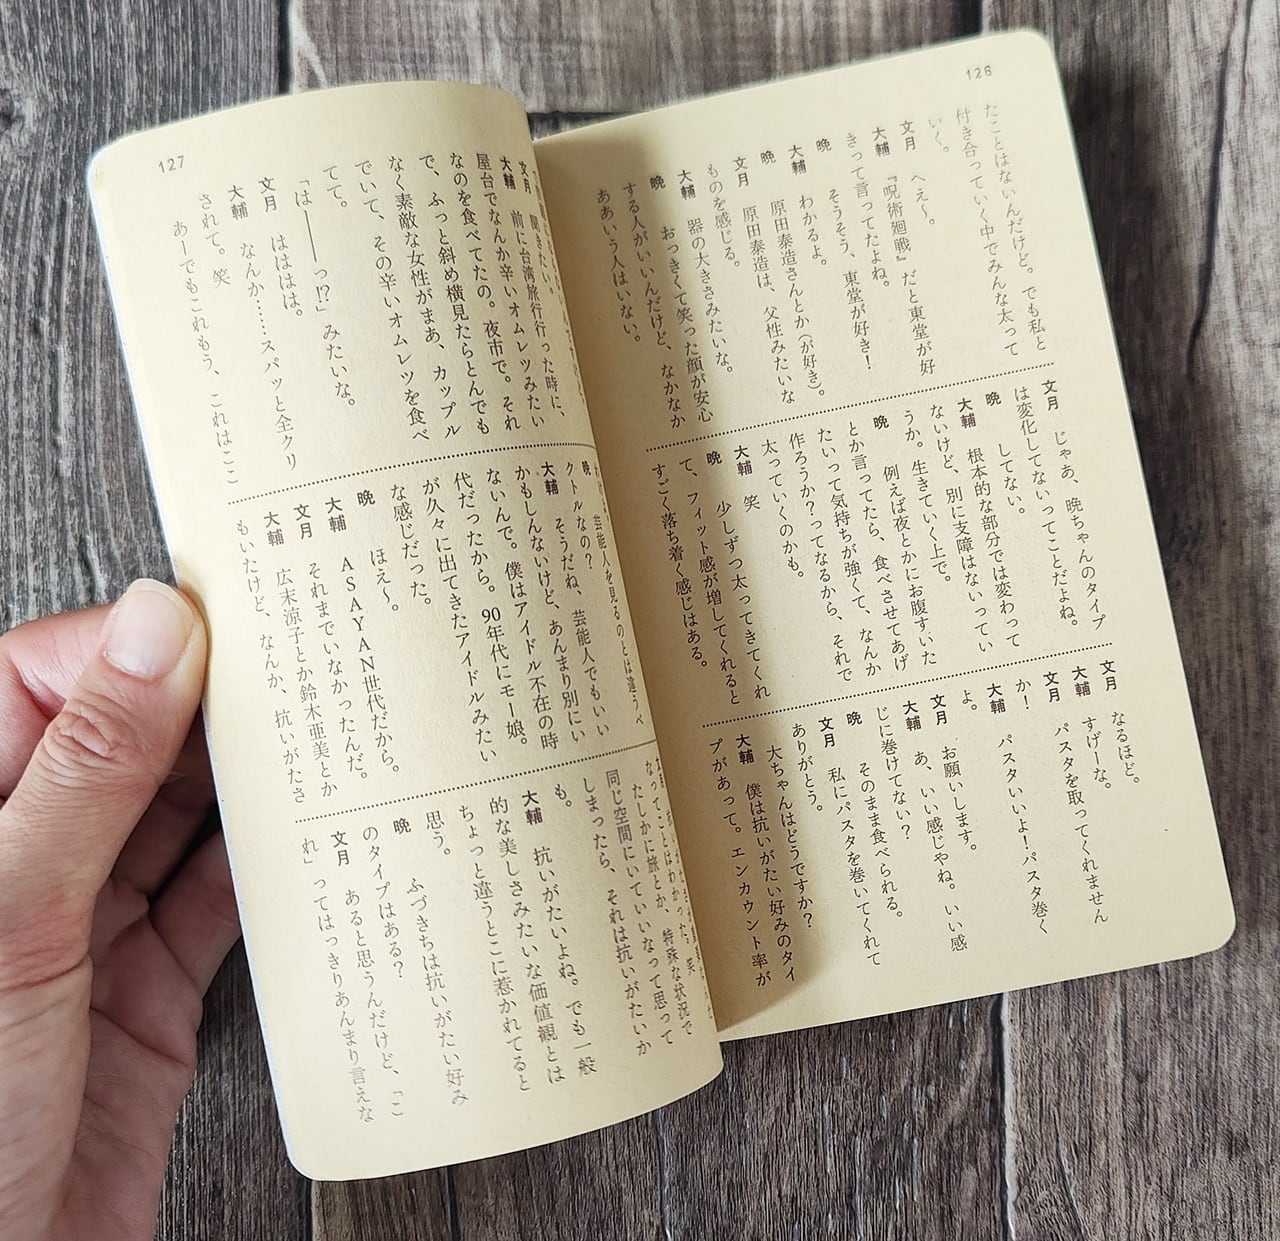 126
たことはないんだけど。でも私と
付き合っていく中でみんな太って
いく。
文月　へえ〜。
大輔　『呪術廻戦』だと東堂が好
きって言ってたよね。
晩　そうそう、東堂が好き！
大輔　わかるよ。
晩　原田泰造さんとか（が好き）。
文月　原田泰造は、父性みたいな
ものを感じる。
大輔　器の大きさみたいな。
晩　おっきくて笑った顔が安心
する人がいいんだけど、なかなか
ああいう人はいない。
文月　じゃあ、晩ちゃんのタイプ
は変化してないってことだよね。
晩　してない。
大輔　根本的な部分では変わって
ないけど、別に支障はないってい
うか。生きていく上で。
晩　例えば夜とかにお腹すいた
とか言ってたら、食べさせてあげ
たいって気持ちが強くて、なんか
作ろうか？ってなるから、それで
太っていくのかも。
大輔　笑
晩　少しずつ太ってきてくれ
て、フィット感が増してくれると
すごく落ち着く感じはある。
文月　なるほど。
大輔　すげーな。
文月　パスタを取ってくれません
か！
大輔　パスタいいよ！パスタ巻く
よ。
文月　お願いします。
大輔　あ、いい感じやね。いい感
じに巻けてない？
晩　そのまま食べられる。
文月　私にパスタを巻いてくれて
ありがとう。
大ちゃんはどうですか？
大輔　僕は抗いがたい好みのタイ
プがあって。エンカウント率が
127
文月　聞きたい。
大輔　前に台湾旅行行った時に、
屋台でなんか辛いオムレツみたい
なのを食べてたの。夜市で。それ
で、ふっと斜め横見たらとんでも
なく素敵な女性がまあ、カップル
でいて、その辛いオムレツを食べ
てて。
「は――っ!?」みたいな。
文月　はははは。
大輔　なんか……スパッと全クリ
されて。笑
あーでもこれもう、これはここ
晩　芸能人を見るのとは違うベ
クトルなの？
大輔　そうだね、芸能人でもいい
かもしんないけど、あんまり別にい
ないんで。僕はアイドル不在の時
代だったから。90年代にモー娘。
が久々に出てきたアイドルみたい
な感じだった。
晩　ほえ〜。
大輔　ＡＳＡＹＡＮ世代だから。
文月　それまでいなかったんだ。
大輔　広末涼子とか鈴木亜美とか
もいたけど、なんか、抗いがたさ
なってことはわかった。笑
たしかに旅とか、特殊な状況で
同じ空間にいていいなって思って
しまったら、それは抗いがたいか
も。
大輔　抗いがたいよね。でも一般
的な美しさみたいな価値観とは
ちょっと違うとこに惹かれてると
思う。
晩　ふづきちは抗いがたい好み
のタイプはある？
文月　あると思うんだけど、「こ
れ」ってはっきりあんまり言えな